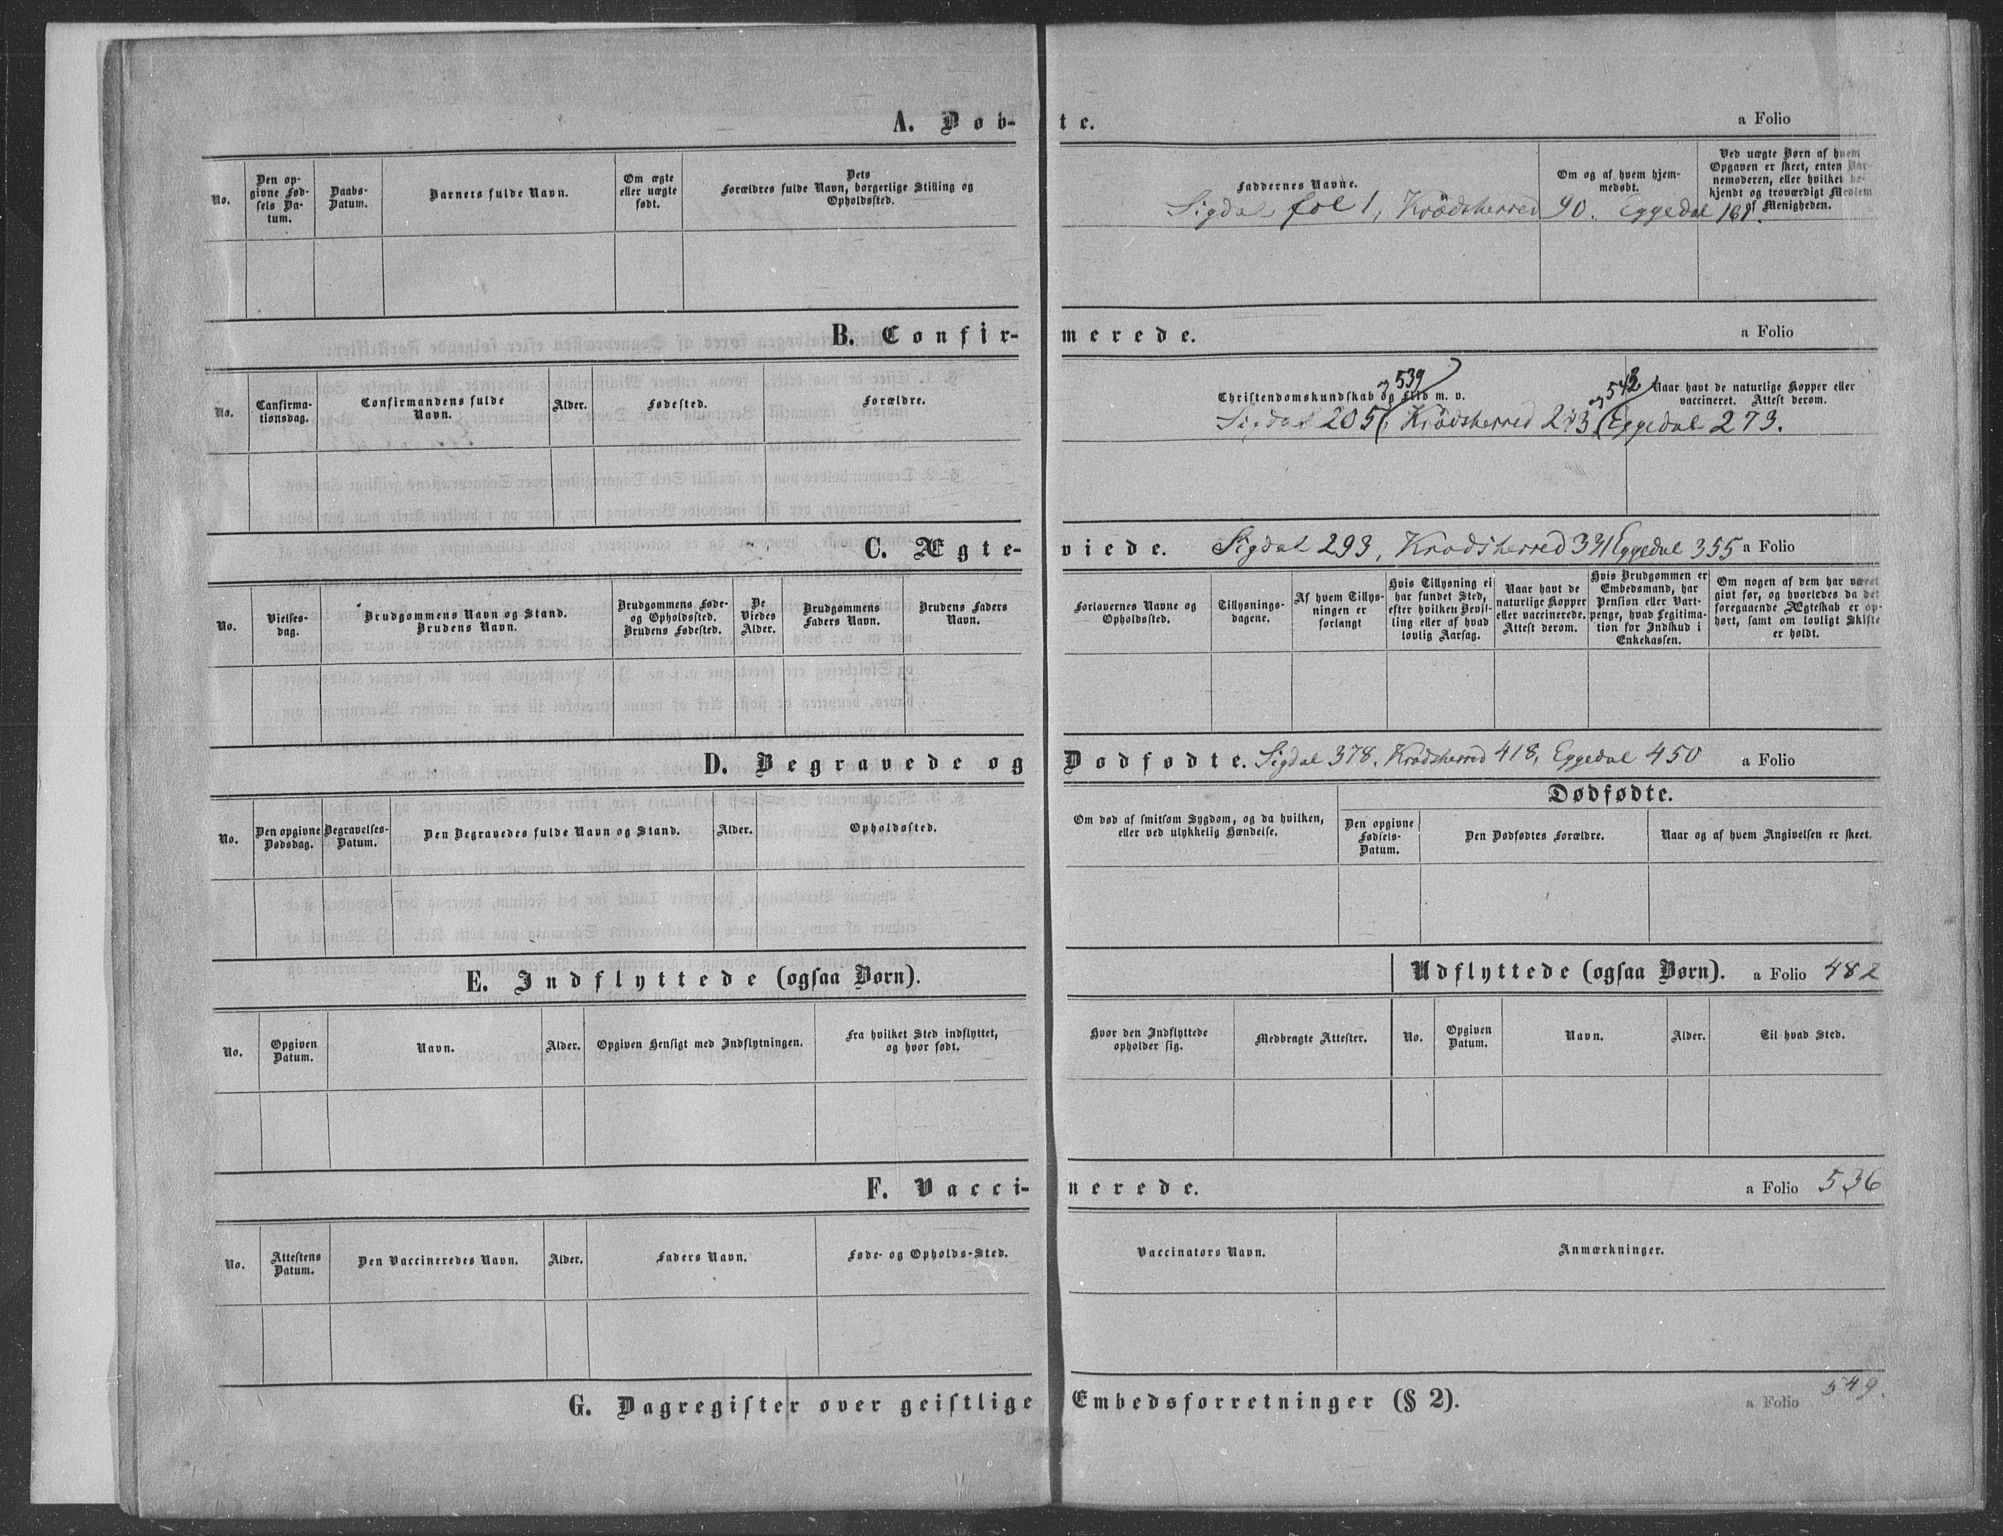 A. Døb-te. a Folio
No.
Den op-
givne Fød-
sels Da-
tum.
Daabs-
Datum.
Barnets fulde Navn.
Om ægte
eller uægte
født.
Dets
Forældres fulde Navn, borgerlige Stilling og
Opholdssted.
Faddernes Navne.
Om og af hvem hjem-
medøbt.
Ved uægte Børn af hvem
Opgaven er skeet, enten Bar-
nemoderen, eller hvilket be-
kjendt og troværdigt Medlem
af Menigheden.
Sigdal fol 1, Krödsherred 90. Eggedal 161.
B. Confir-merede. a Folio
No.
Confirma-
tionsdag.
Confirmandens fulde
Navn.
Alder.
Fødested.
Forældre.
Christendomskundskab og Flid m. v.
Naar havt de naturlige Kopper eller
vaccineret. Attest derom.
og 539
og 543
Sigdal 205, Krödsherred 243 Eggedal 273.
C. Ægte-viede. Sigdal 293, Krodsherred 331 Eggedal 355 a Folio
No.
Vielses-
dag.
Brudgommens Navn og Stand.
Brudens Navn.
Brudgommens Føde-
og Opholdssted.
Brudens Fødested.
De
Viedes
Alder.
Brudgommens
Faders Navn.
Brudens Faders
Navn.
Forlovernes Navne og
Opholdssted.
Tillysnings-
dagene.
Af hvem Tillys-
ningen er
forlangt
Hvis Tillysning ei
har fundet Sted,
efter hvilken Bevil-
ling eller af hvad
lovlig Aarsag.
Naar havt de
naturlige Kopper
eller vaccinerede.
Attest derom.
Hvis Brudgommen er
Embedsmand, har
Pension eller Vart-
penge, hvad Legitima-
tion for Indskud i
Enkekassen.
Om nogen af dem har været
givt før, og hvorledes da det
foregaaende Ægteskab er op-
hørt, samt om lovligt Skifte
er holdt.
D. Begravede og Dødfødte. Sigdal 378. Krodsherred 418, Eggedal 450 a Folio
No.
Den opgivne
Dødsdag.
Begravelses-
Datum.
Den Begravedes fulde Navn og Stand.
Alder.
Opholdssted.
Om død af smitsom Sygdom, og da hvilken,
eller ved ulykkelig Hændelse.
Dødfødte.
Den opgivne
Fødsels-
Datum.
Den Dødfødtes Forældre.
Naar og af hvem Angivelsen er skeet.
E. Indflyttede (ogsaa Børn).
Udflyttede (ogsaa Børn). a Folio 482
No.
Opgiven
Datum.
Navn.
Alder.
Opgiven Hensigt med Indflytningen.
Fra hvilket Sted indflyttet,
og hvor født.
Hvor den Indflyttede
opholder sig.
Medbragte Attester.
No.
Opgiven
Datum.
Navn.
Alder.
Til hvad Sted.
F. Vacci-nerede. a Folio 536
No.
Attestens
Datum.
Den Vaccineredes Navn.
Alder.
Faders Navn.
Føde- og Opholds-Sted.
Vaccinators Navn.
Anmærkninger.
G. Dagregister over geistlige Embedsforretninger (§ 2). a Folio 549.